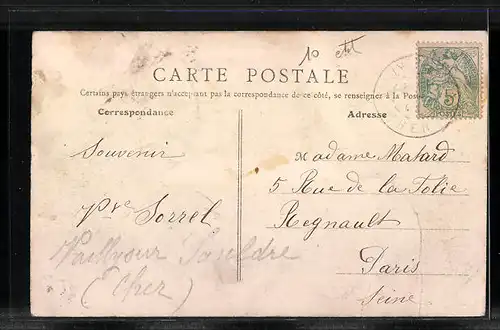 10 
CARTE POSTALE
Certains pays étrangers n'acceptant pas la correspondance de ce côté, se renseigner à la Poste
Correspondance
Adresse
Souvenir
Madame Matard
5 Rue de la Folie
Regnault
Paris
Seine
Sorrel
Vailly sur Sauldre
(Cher)
5